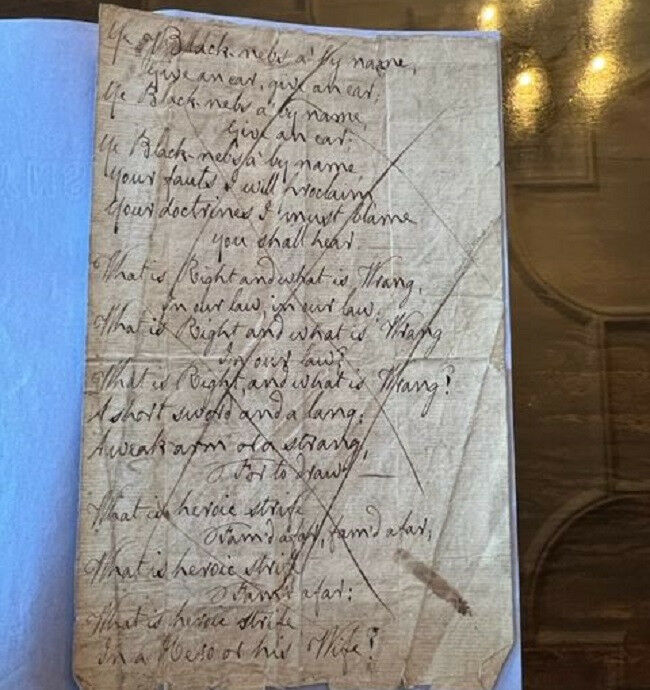 Ye Black-nebs a' by name,
Give an ear, give an ear,
Ye Black-nebs a' by name,
Give an ear:
Ye Black-nebs a' by name
Your faults I will proclaim
Your doctrines I must blame
You shall hear
What is Right and what is Wrang,
In our law, in our law,
What is Right and what is Wrang
In our law?
What is Right, and what is Wrang?
A short sword and a lang,
A weak arm or a strang,
For to draw.
What is heroic strife
Fam'd afar, fam'd afar,
What is heroic strife
Fam'd afar:
What is heroic strife
In a Hero or his Wife?